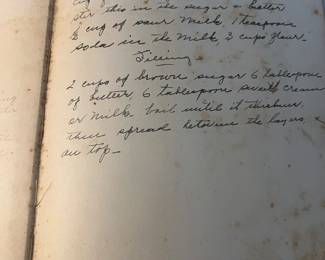 ster this in the sugar & butter
½ cup of sour milk, 1 teaspoon
soda in the milk, 3 cups flour.
Filling
2 cups of brown sugar 6 tablespoon
of butter, 6 tablespoon sweet cream
or milk. boil until it thickens
then spread between the layers &
on top—